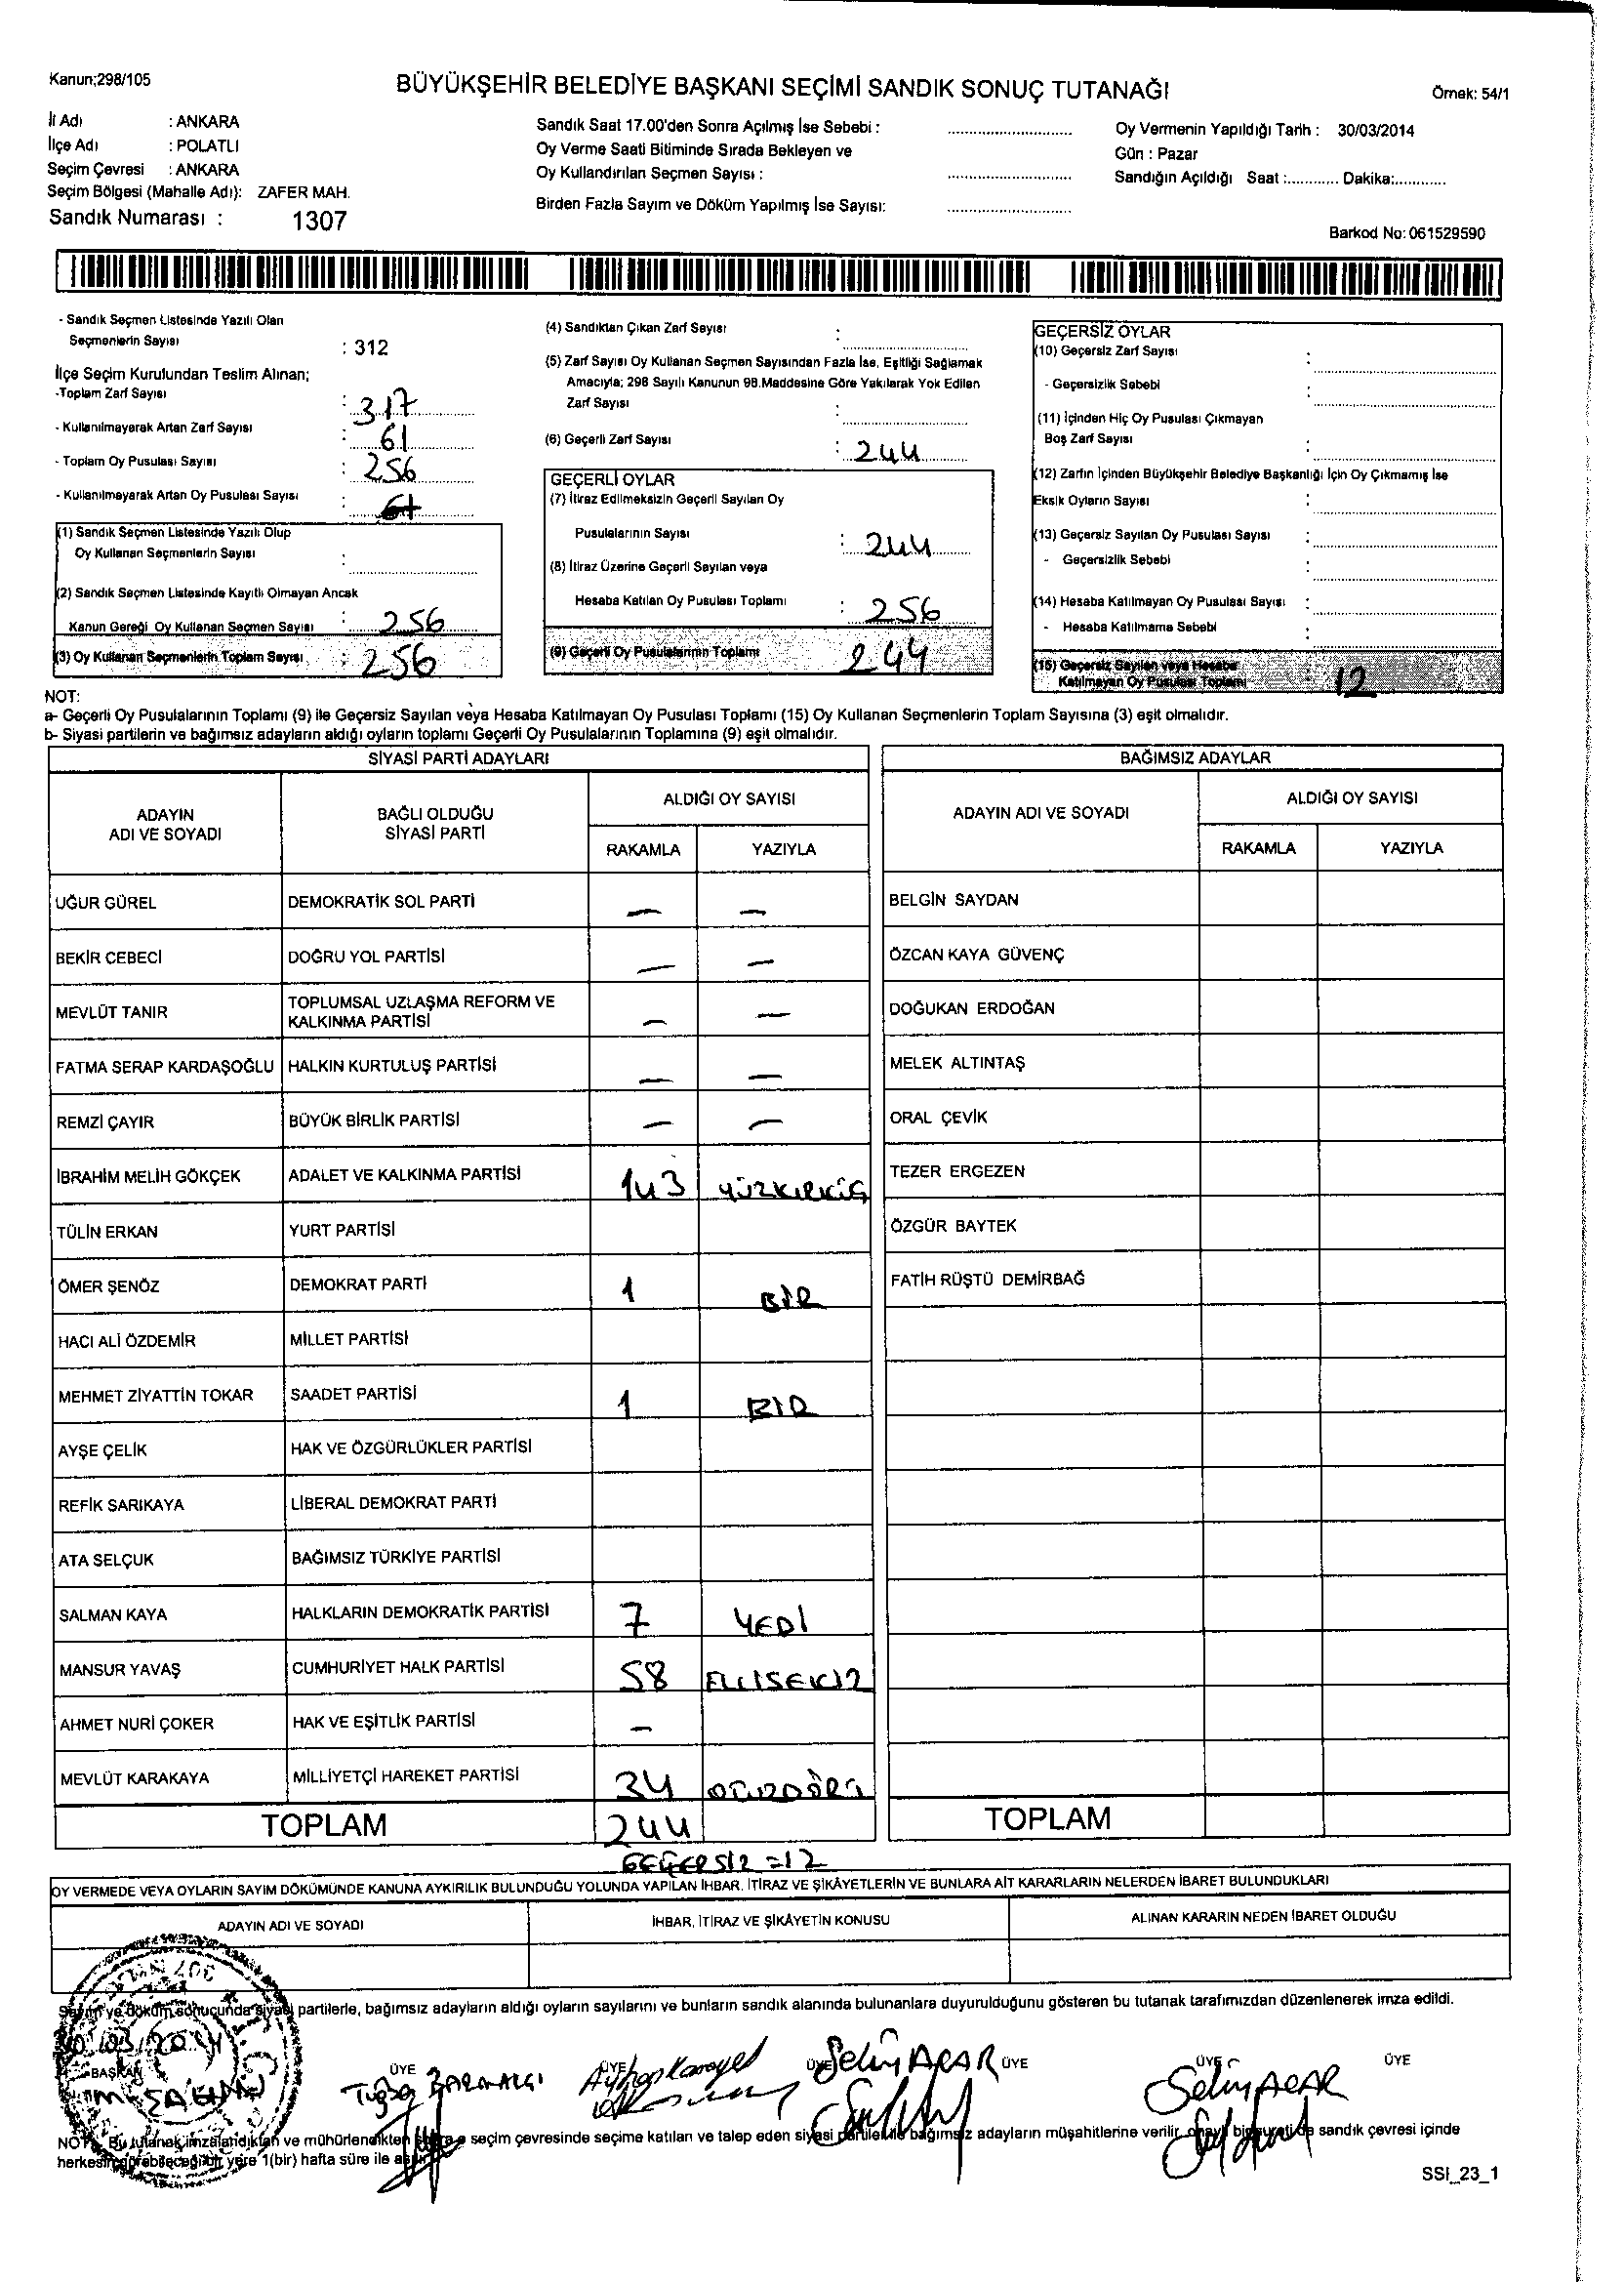 Kanun;298/105
BÜYÜKŞEHİR BELEDİYE BAŞKANI SEÇİMİ SANDIK SONUÇ TUTANAĞI
Örnek: 54/1
İl Adı : ANKARA
İlçe Adı : POLATLI
Seçim Çevresi : ANKARA
Seçim Bölgesi (Mahalle Adı): ZAFER MAH.
Sandık Numarası : 1307
Sandık Saat 17.00'den Sonra Açılmış İse Sebebi :
Oy Verme Saati Bitiminde Sırada Bekleyen ve
Oy Kullandırılan Seçmen Sayısı :
Birden Fazla Sayım ve Döküm Yapılmış İse Sayısı:
Oy Vermenin Yapıldığı Tarih : 30/03/2014
Gün : Pazar
Sandığın Açıldığı Saat :........... Dakika:...........
Barkod No: 061529590
- Sandık Seçmen Listesinde Yazılı Olan
Seçmenlerin Sayısı : 312
İlçe Seçim Kurulundan Teslim Alınan;
-Toplam Zarf Sayısı : 317
- Kullanılmayarak Artan Zarf Sayısı : 61
- Toplam Oy Pusulası Sayısı : 256
- Kullanılmayarak Artan Oy Pusulası Sayısı : 61
(1) Sandık Seçmen Listesinde Yazılı Olup
Oy Kullanan Seçmenlerin Sayısı :
(2) Sandık Seçmen Listesinde Kayıtlı Olmayan Ancak
Kanun Gereği Oy Kullanan Seçmen Sayısı : 256
(3) Oy Kullanan Seçmenlerin Toplam Sayısı : 256
(4) Sandıktan Çıkan Zarf Sayısı :
(5) Zarf Sayısı Oy Kullanan Seçmen Sayısından Fazla İse, Eşitliği Sağlamak
Amacıyla; 298 Sayılı Kanunun 98.Maddesine Göre Yakılarak Yok Edilen
Zarf Sayısı :
(6) Geçerli Zarf Sayısı : 244
GEÇERLİ OYLAR
(7) İtiraz Edilmeksizin Geçerli Sayılan Oy
Pusulalarının Sayısı : 244
(8) İtiraz Üzerine Geçerli Sayılan veya
Hesaba Katılan Oy Pusulası Toplamı : 256
(9) Geçerli Oy Pusulalarının Toplamı 244
GEÇERSİZ OYLAR
(10) Geçersiz Zarf Sayısı :
- Geçersizlik Sebebi :
(11) İçinden Hiç Oy Pusulası Çıkmayan
Boş Zarf Sayısı :
(12) Zarfın İçinden Büyükşehir Belediye Başkanlığı İçin Oy Çıkmamış İse
Eksik Oyların Sayısı :
(13) Geçersiz Sayılan Oy Pusulası Sayısı :
- Geçersizlik Sebebi :
(14) Hesaba Katılmayan Oy Pusulası Sayısı :
- Hesaba Katılmama Sebebi :
(15) Geçersiz Sayılan veya Hesaba
Katılmayan Oy Pusulası Toplamı : 12
NOT:
a- Geçerli Oy Pusulalarının Toplamı (9) ile Geçersiz Sayılan veya Hesaba Katılmayan Oy Pusulası Toplamı (15) Oy Kullanan Seçmenlerin Toplam Sayısına (3) eşit olmalıdır.
b- Siyasi partilerin ve bağımsız adayların aldığı oyların toplamı Geçerli Oy Pusulalarının Toplamına (9) eşit olmalıdır.
SİYASİ PARTİ ADAYLARI
ADAYIN ADI VE SOYADI BAĞLI OLDUĞU SİYASİ PARTİ ALDIĞI OY SAYISI
RAKAMLA YAZIYLA
UĞUR GÜREL DEMOKRATİK SOL PARTİ — —
BEKİR CEBECİ DOĞRU YOL PARTİSİ — —
MEVLÜT TANIR TOPLUMSAL UZLAŞMA REFORM VE KALKINMA PARTİSİ — —
FATMA SERAP KARDAŞOĞLU HALKIN KURTULUŞ PARTİSİ — —
REMZİ ÇAYIR BÜYÜK BİRLİK PARTİSİ — —
İBRAHİM MELİH GÖKÇEK ADALET VE KALKINMA PARTİSİ 143 YÜZKIRKÜÇ
TÜLİN ERKAN YURT PARTİSİ
ÖMER ŞENÖZ DEMOKRAT PARTİ 1 BİR
HACI ALİ ÖZDEMİR MİLLET PARTİSİ
MEHMET ZİYATTİN TOKAR SAADET PARTİSİ 1 BİR
AYŞE ÇELİK HAK VE ÖZGÜRLÜKLER PARTİSİ
REFİK SARIKAYA LİBERAL DEMOKRAT PARTİ
ATA SELÇUK BAĞIMSIZ TÜRKİYE PARTİSİ
SALMAN KAYA HALKLARIN DEMOKRATİK PARTİSİ 7 YEDİ
MANSUR YAVAŞ CUMHURİYET HALK PARTİSİ 58 ELLİSEKİZ
AHMET NURİ ÇOKER HAK VE EŞİTLİK PARTİSİ —
MEVLÜT KARAKAYA MİLLİYETÇİ HAREKET PARTİSİ 34 OTUZDÖRT
TOPLAM 244
GEÇERSİZ = 12
BAĞIMSIZ ADAYLAR
ADAYIN ADI VE SOYADI ALDIĞI OY SAYISI
RAKAMLA YAZIYLA
BELGİN SAYDAN
ÖZCAN KAYA GÜVENÇ
DOĞUKAN ERDOĞAN
MELEK ALTINTAŞ
ORAL ÇEVİK
TEZER ERGEZEN
ÖZGÜR BAYTEK
FATİH RÜŞTÜ DEMİRBAĞ
TOPLAM
OY VERMEDE VEYA OYLARIN SAYIM DÖKÜMÜNDE KANUNA AYKIRILIK BULUNDUĞU YOLUNDA YAPILAN İHBAR, İTİRAZ VE ŞİKÂYETLERİN VE BUNLARA AİT KARARLARIN NELERDEN İBARET BULUNDUKLARI
ADAYIN ADI VE SOYADI İHBAR, İTİRAZ VE ŞİKÂYETİN KONUSU ALINAN KARARIN NEDEN İBARET OLDUĞU
Sayım ve döküm sonucunda siyasi partilerle, bağımsız adayların aldığı oyların sayılarını ve bunların sandık alanında bulunanlara duyurulduğunu gösteren bu tutanak tarafımızdan düzenlenerek imza edildi.
30/03/2014
BAŞKAN ÜYE ÜYE ÜYE ÜYE ÜYE ÜYE
Selin ACAR Selin ACAR
NOT: Bu tutanak imzalandıktan ve mühürlendikten sonra o seçim çevresinde seçime katılan ve talep eden siyasi partiler ile bağımsız adayların müşahitlerine verilir, onaylı bir sureti de sandık çevresi içinde
herkesin görebileceği bir yere 1(bir) hafta süre ile asılır.
SSI_23_1